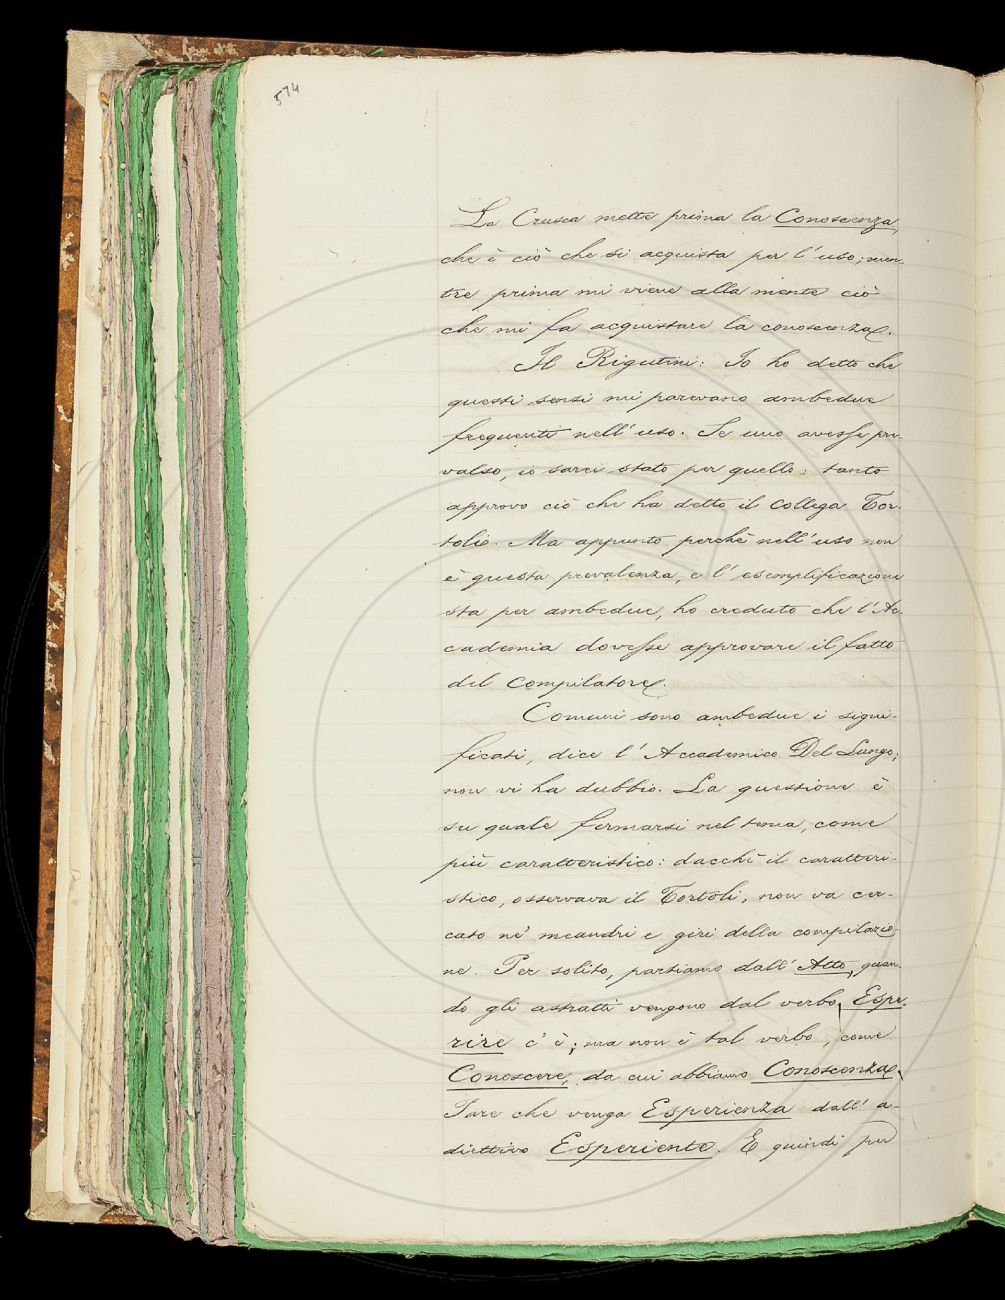 574
La Crusca mette prima la Conoscenza,
che è ciò che si acquista per l'uso; men-
tre prima mi viene alla mente ciò
che mi fa acquistare la conoscenza.
Il Rigutini: Io ho detto che
questi sensi mi parevano ambedue
frequenti nell'uso. Se uno avesse pre-
valso, io sarei stato per quello: tanto
approvo ciò che ha detto il collega Tor-
toli. Ma appunto perchè nell'uso non
è questa prevalenza, e l'esemplificazione
sta per ambedue, ho creduto che l'Ac-
cademia dovesse approvare il fatto
del compilatore.
Comuni sono ambedue i signi-
ficati, dice l'Accademico Del Lungo;
non vi ha dubbio. La questione è
su quale fermarsi nel tema, come
più caratteristico: dacchè il caratteri-
stico, osservava il Tortoli, non va cer-
cato ne' meandri e giri della compilazio-
ne. Per solito, partiamo dall'Atto, quan-
do gli astratti vengono dal verbo, Espe-
rire c'è; ma non è tal verbo, come
Conoscere, da cui abbiamo Conoscenza.
Pare che venga Esperienza dall'a-
diettivo Esperiente. E quindi per